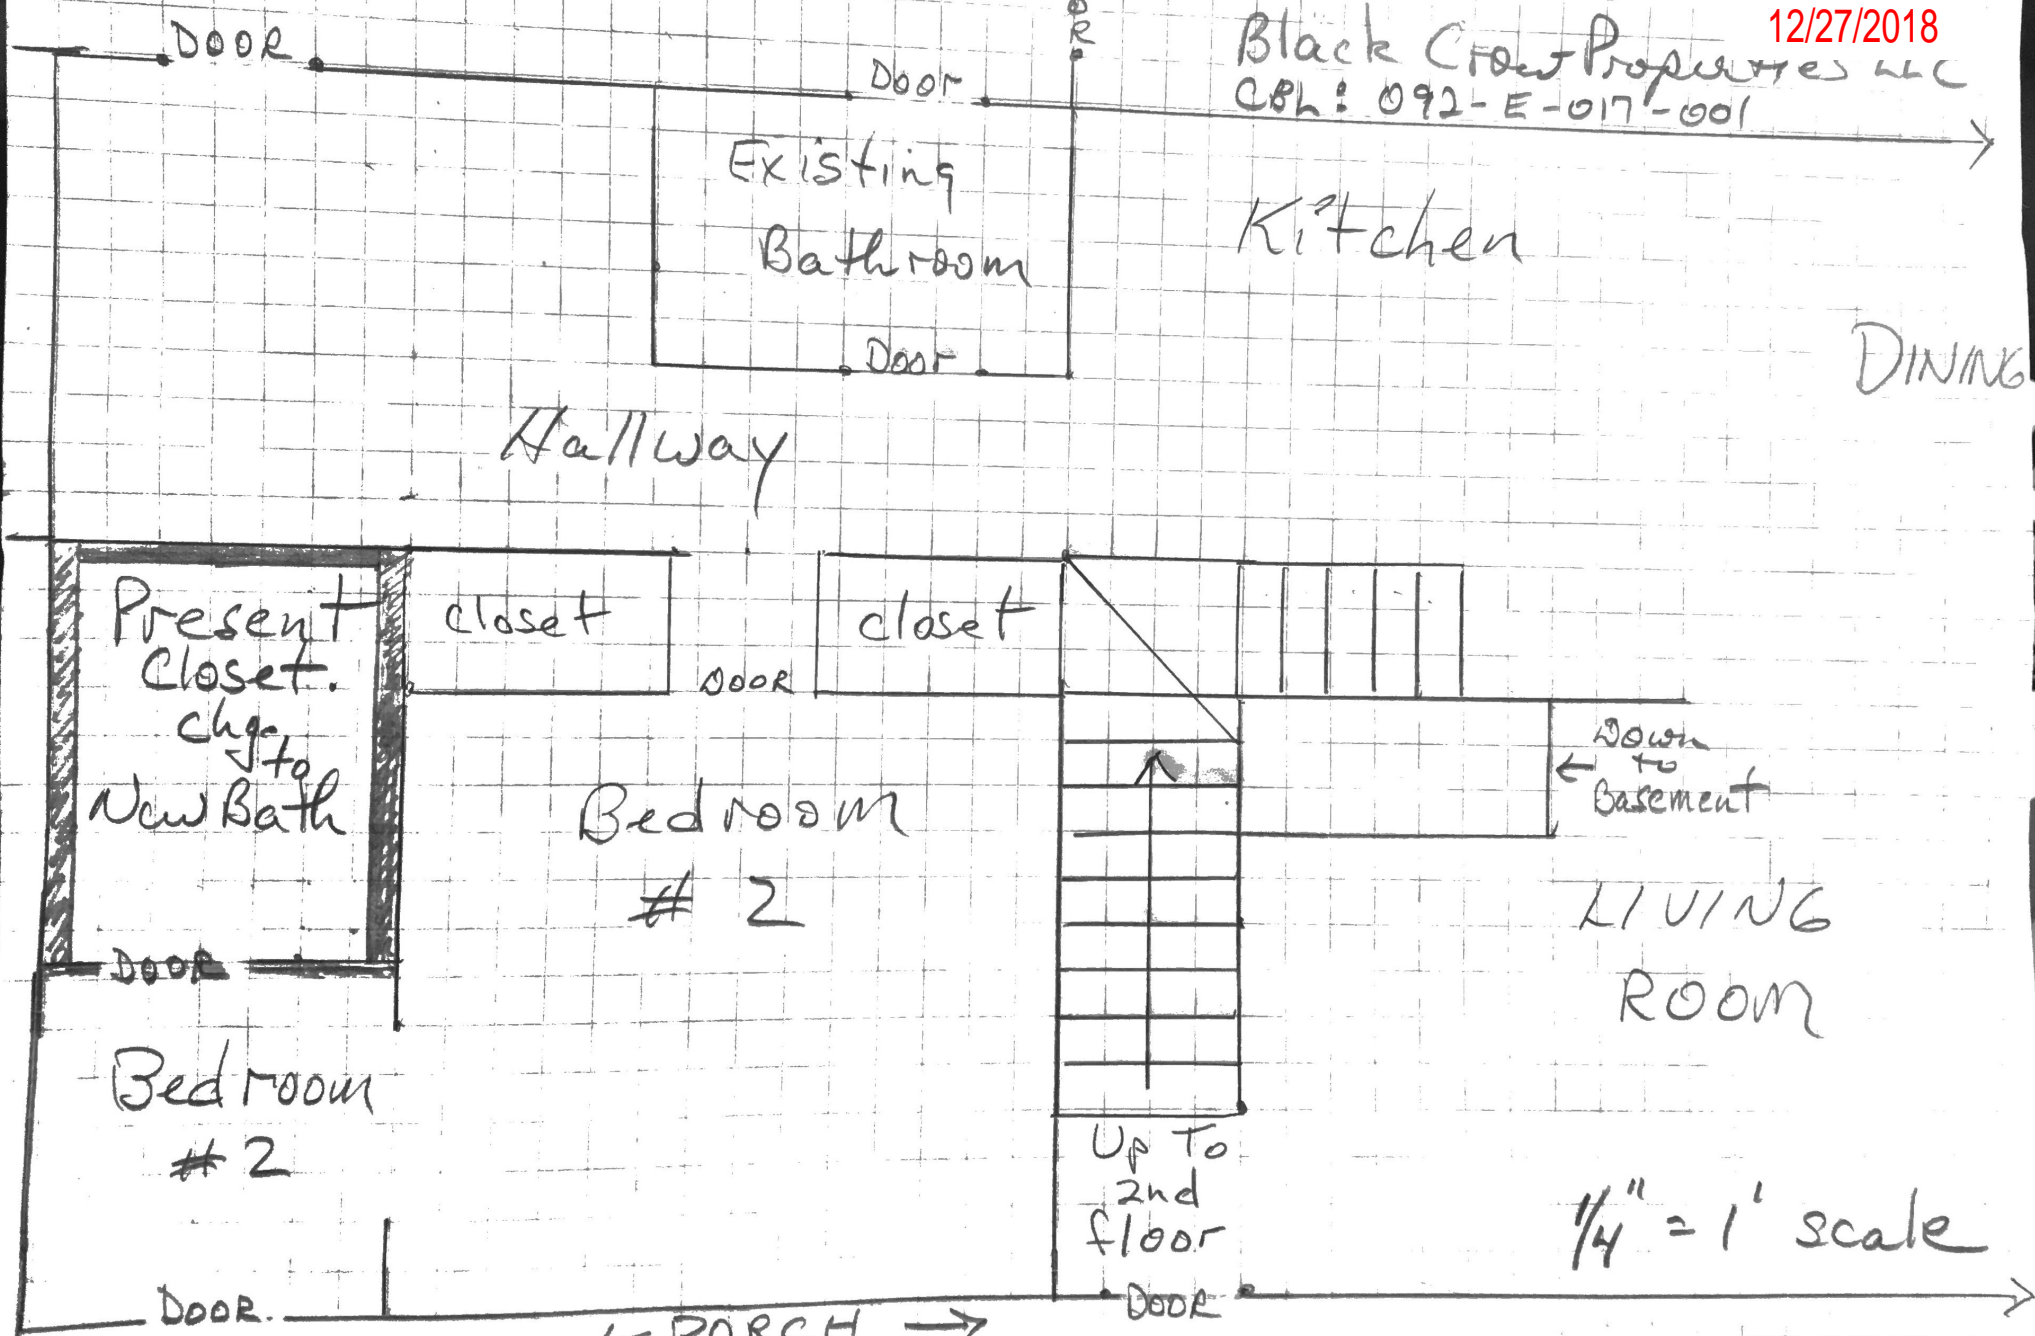 12/27/2018
Black Crow Properties LLC
CBL: 092-E-017-001
DOOR
Door
OR
Existing
Bathroom
Door
Kitchen
DINING
Hallway
Present
Closet.
chg.
to
New Bath
DOOR
closet
DOOR
closet
Down
to
Basement
←
Bedroom
# 2
LIVING
ROOM
Bedroom
# 2
Up To
2nd
floor
1/4" = 1' scale
DOOR.
DOOR
← PORCH →